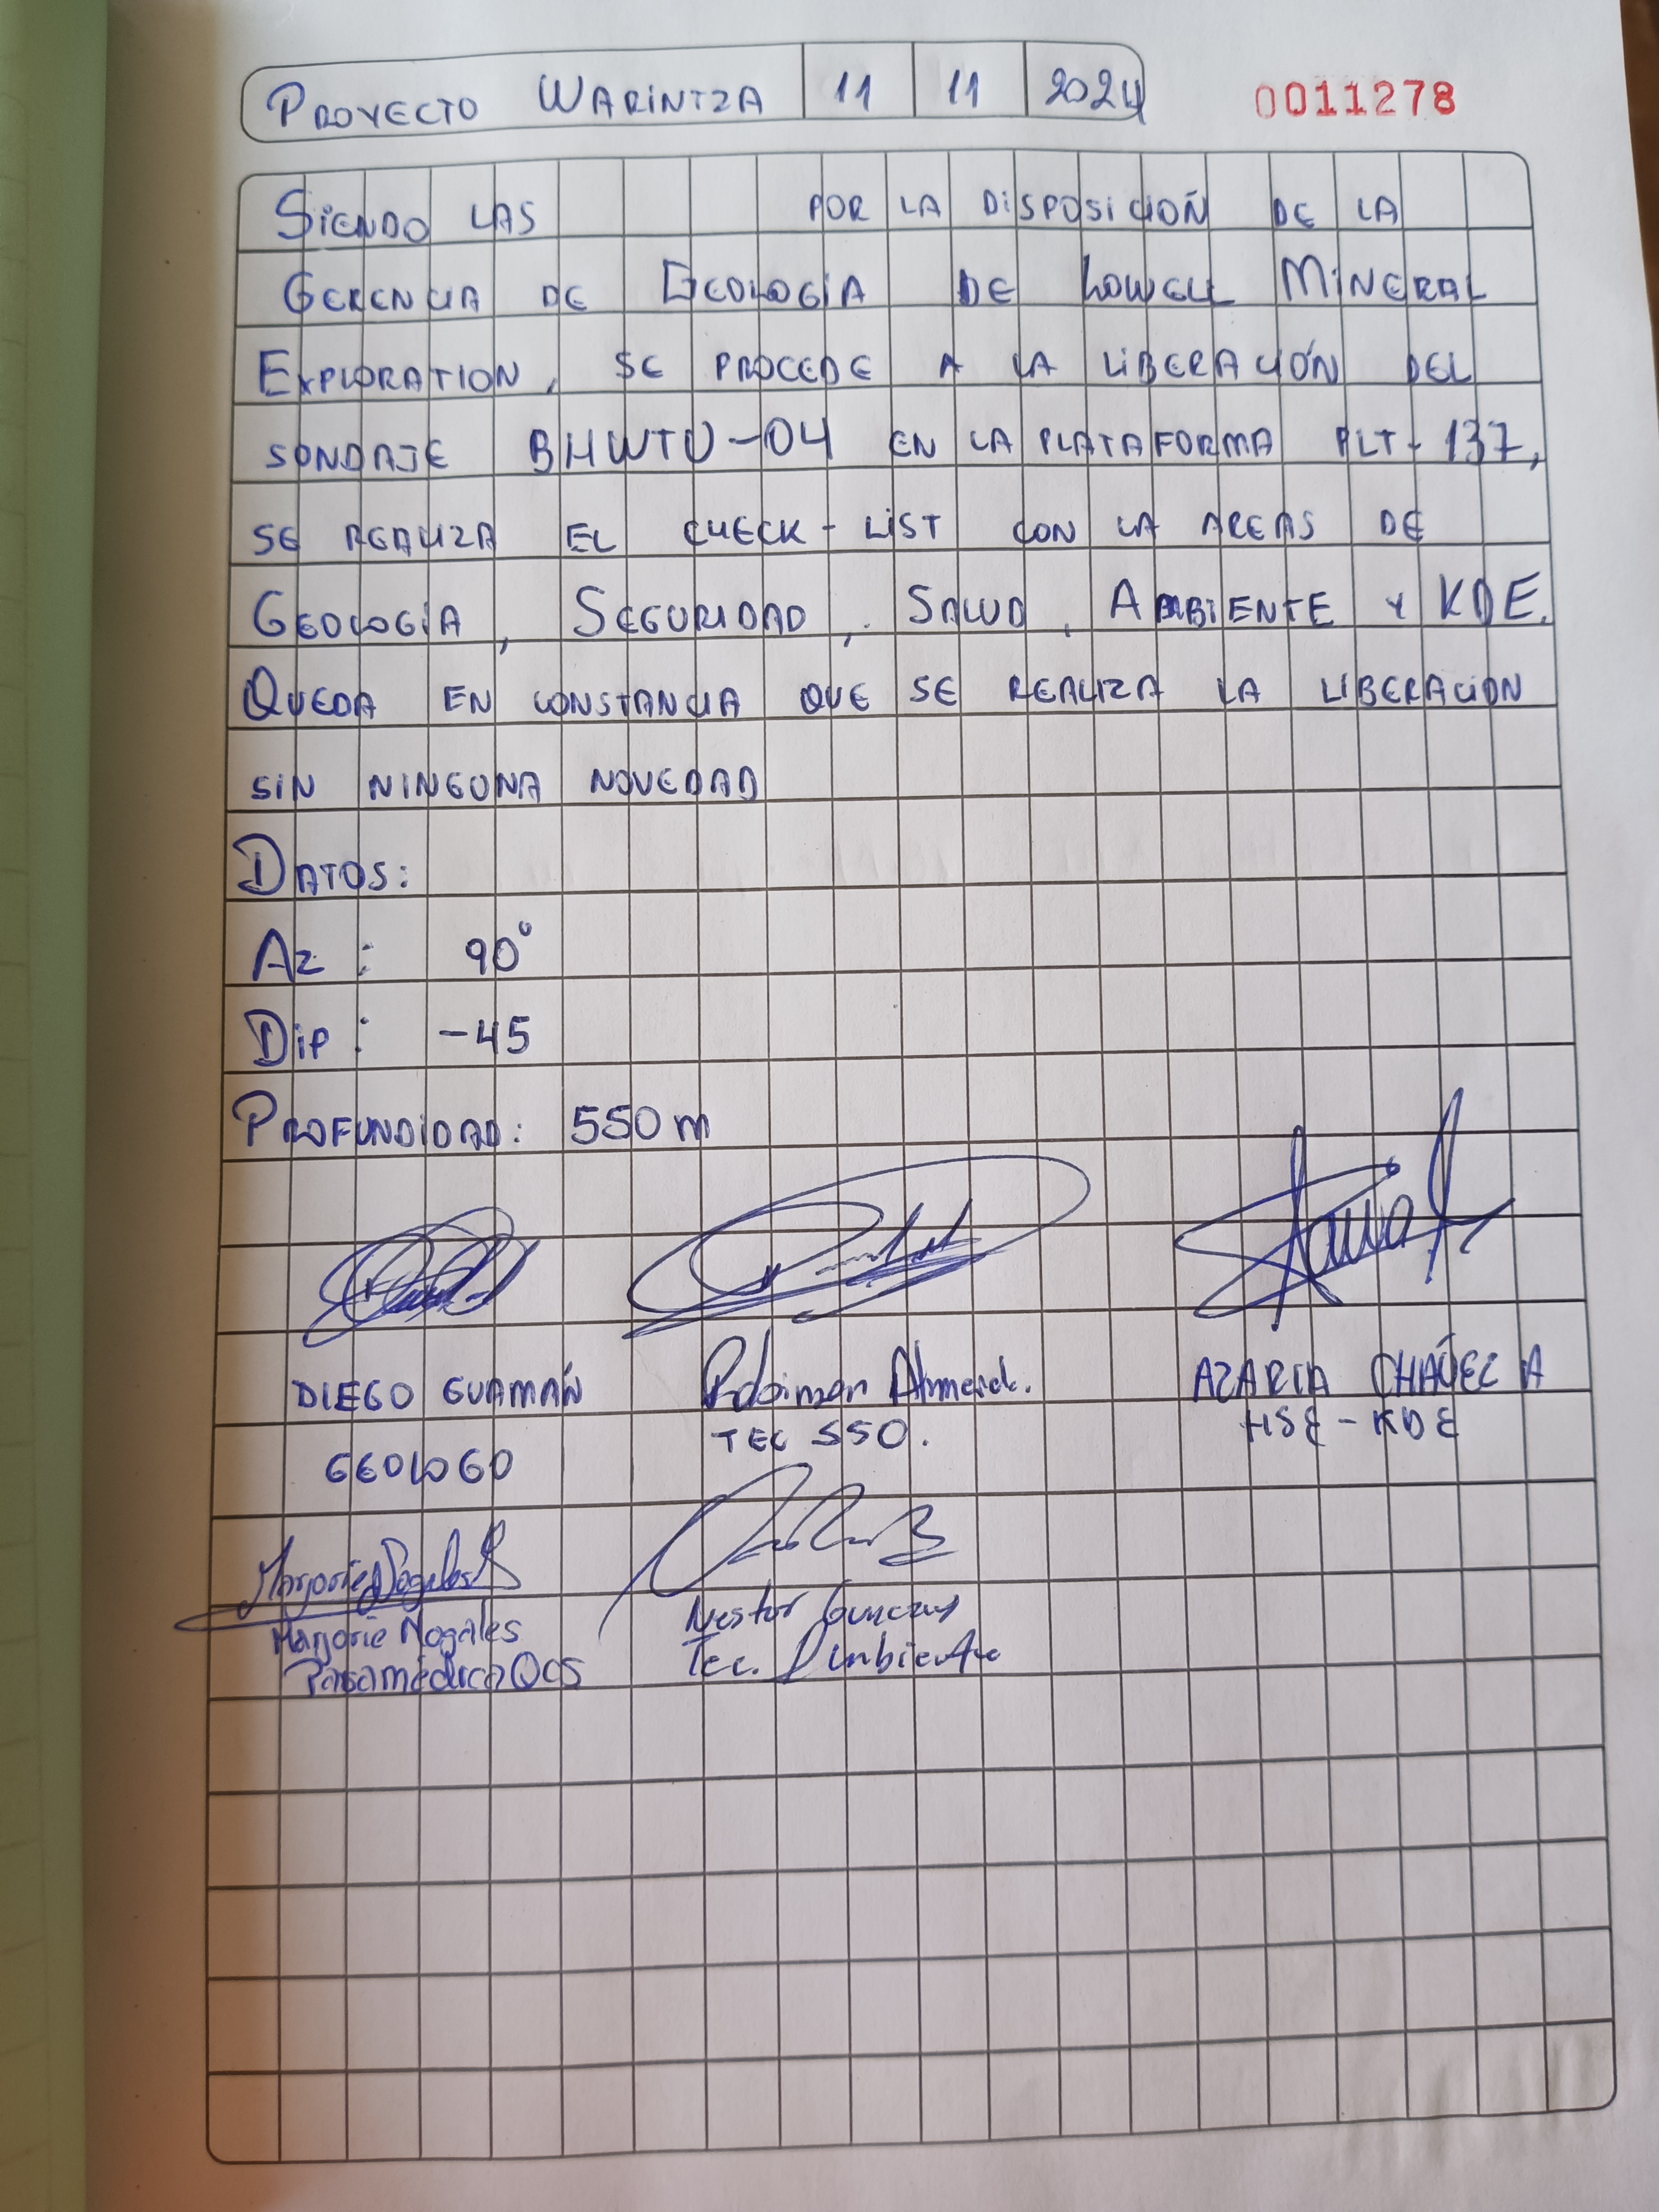 PROYECTO WARINTZA 11 11 2024 0011278
SIENDO LAS POR LA DISPOSICIÓN DE LA
GERENCIA DE GEOLOGÍA DE LOWELL MINERAL
EXPLORATION, SE PROCEDE A LA LIBERACIÓN DEL
SONDAJE BHWTU-04 EN LA PLATAFORMA PLT-137,
SE REALIZA EL CHECK-LIST CON LA AREAS DE
GEOLOGÍA, SEGURIDAD, SALUD, AMBIENTE Y KDE.
QUEDA EN CONSTANCIA QUE SE REALIZA LA LIBERACIÓN
SIN NINGUNA NOVEDAD
DATOS:
AZ : 90°
DIP : -45
PROFUNDIDAD: 550 m
DIEGO GUAMÁN AZARIA CHÁVEZ A
TEC SSO. HSE-KDE
GEOLOGO
Marjorie Nogales R
Marjorie Nogales Nestor
Paramédico Tec. Ambiente